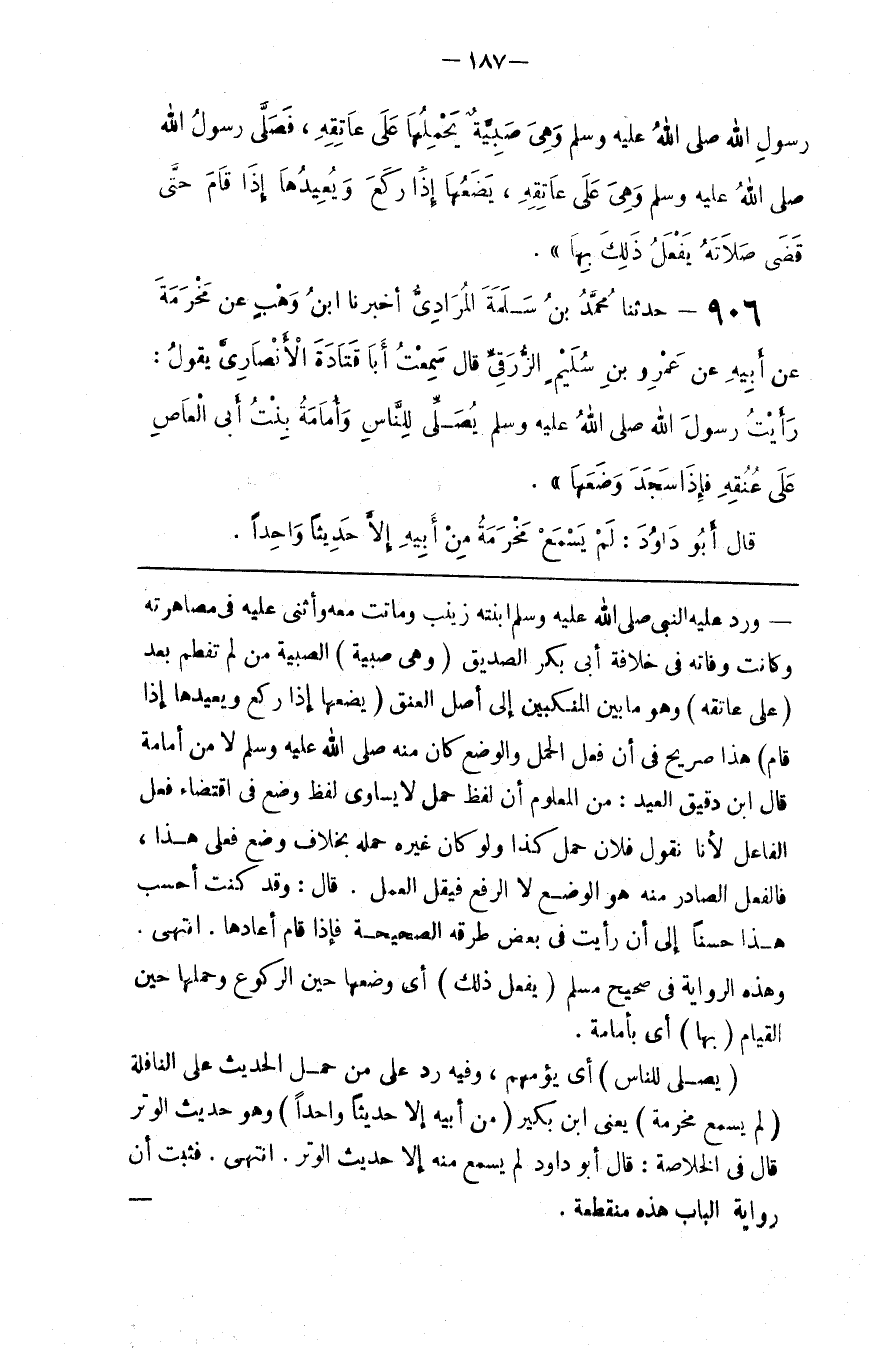 — ١٨٧ —
رسولِ الله صلى اللهُ عليه وسلم وَهِىَ صَبِيَّةٌ يَحْمِلُهَا عَلَى عَاتِقِهِ ، فَصَلَّى رسولُ الله
صلى اللهُ عليه وسلم وَهِىَ عَلَى عاتِقِهِ ، يَضَعُهَا إِذَا رَكَعَ وَيُعِيدُهَا إِذَا قَامَ حَتَّى
قَضَى صَلَاتَهُ يَفْعَلُ ذَلِكَ بِهاَ » .
٩٠٦ — حدثنا مُحمَّدُ بنُ سَــلَمَةَ المُرَادِىُّ أخبرنا ابنُ وَهْبٍ عن مَخْرَمَةَ
عن أَبِيهِ عن عَمْرِو بنِ سُلَيْمٍ الزُّرَقِىِّ قال سَمِعْتُ أَبَا قَتَادَةَ الْأَنْصَارِىَّ يقولُ :
رَأَيْتُ رسولَ الله صلى اللهُ عليه وسلم يُصَــلِّى لِلنَّاسِ وَأُمَامَةُ بِنْتُ أبى الْعَاصِ
عَلَى عُنُقِهِ فإِذَا سَجَدَ وَضَعَهَا » .
قال أَبُو دَاوُدَ : لَمْ يَسْمَعْ مَخْرَمَةُ مِنْ أَبِيهِ إِلاَّ حَدِيثاً وَاحِداً .
— ورد عليه النبى صلى الله عليه وسلم ابنته زينب وماتت معه وأثنى عليه فى مصاهرته
وكانت وفاته فى خلافة أبى بكر الصديق ( وهى صبية ) الصبية من لم تفطم بعد
( على عاتقه ) وهو مابين المنكبين إلى أصل العنق ( يضعها إذا ركع ويعيدها إذا
قام ) هذا صريح فى أن فعل الحمل والوضع كان منه صلى الله عليه وسلم لا من أمامة
قال ابن دقيق العيد : من المعلوم أن لفظ حمل لايساوى لفظ وضع فى اقتضاء فعل
الفاعل لأنا نقول فلان حمل كذا ولو كان غيره حمله بخلاف وضع فعلى هــذا ،
فالفعل الصادر منه هو الوضــع لا الرفع فيقل العمل . قال : وقد كنت أحسب
هــذا حسناً إلى أن رأيت فى بعض طرقه الصحيحــة فإذا قام أعادها . انتهى .
وهذه الرواية فى صحيح مسلم ( يفعل ذلك ) أى وضعها حين الركوع وحملها حين
القيام ( بها ) أى بأمامة .
( يصــلى للناس ) أى يؤمهم ، وفيه رد على من حمــل الحديث على النافلة
( لم يسمع مخرمة ) يعنى ابن بكير ( من أبيه إلا حديثاً واحداً ) وهو حديث الوتر
قال فى الخلاصة : قال أبو داود لم يسمع منه إلا حديث الوتر . انتهى . فثبت أن
رواية الباب هذه منقطعة . —